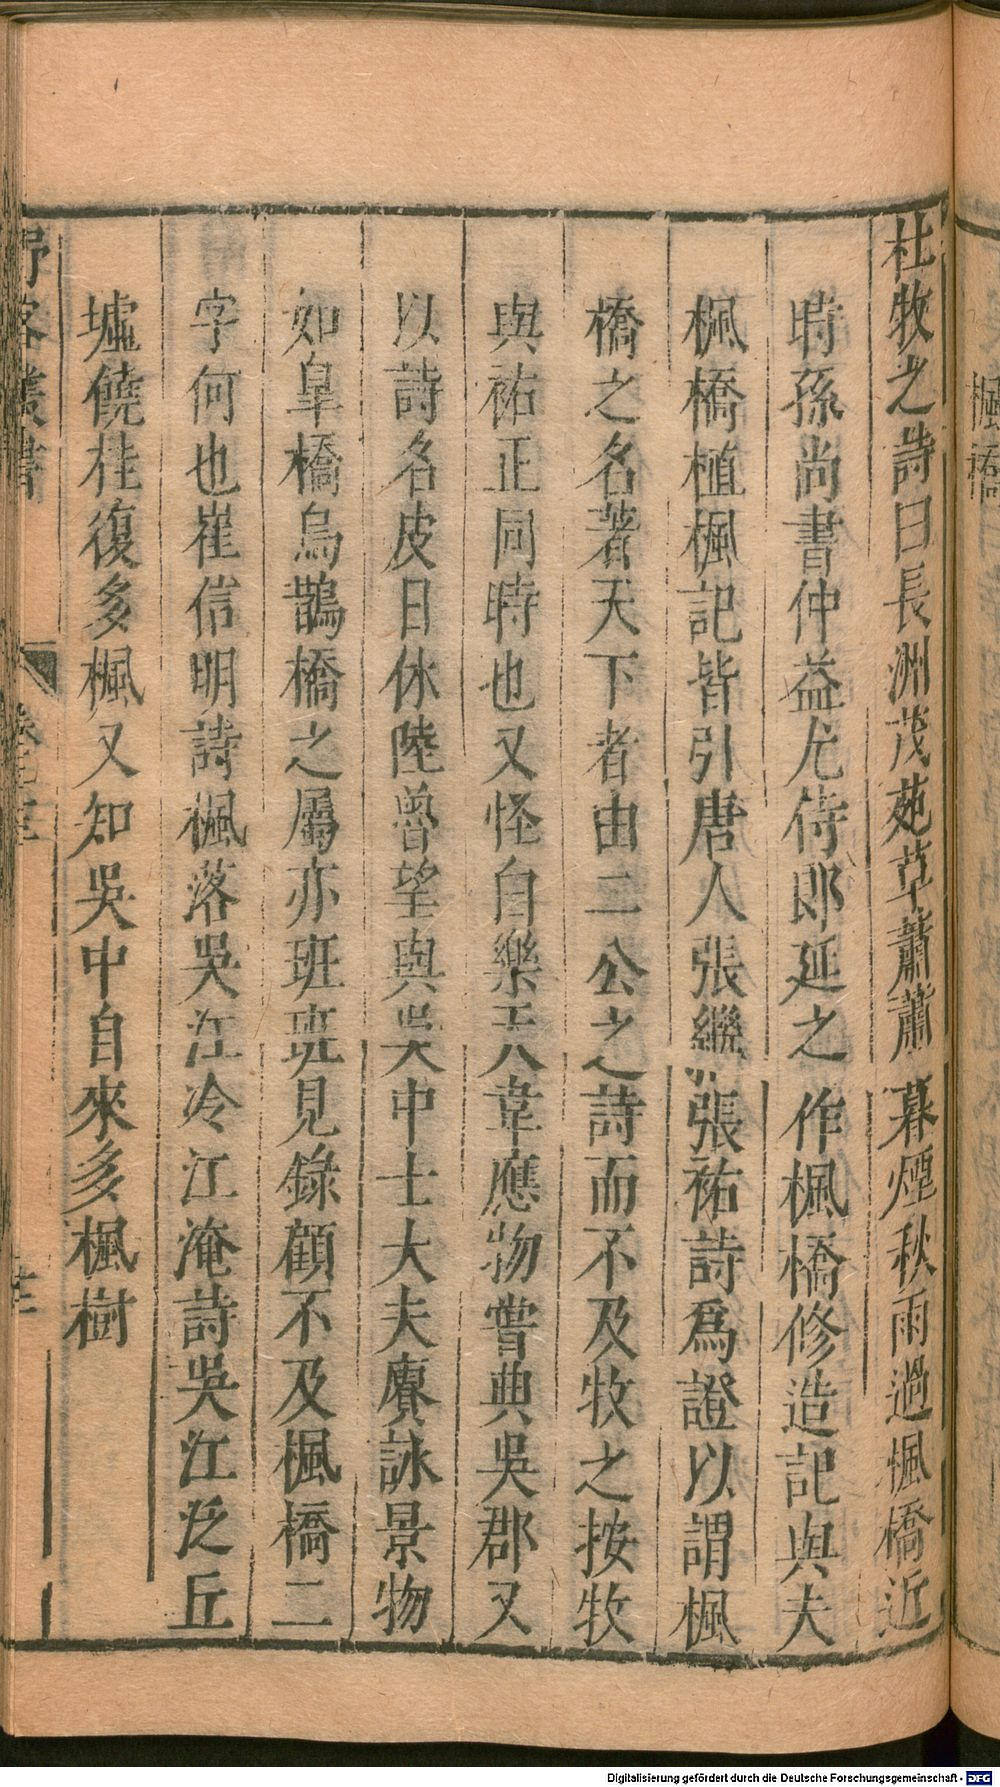 楓橋
杜牧之詩曰長洲茂苑草蕭蕭暮煙秋雨過楓橋近
時孫尚書仲益尤侍郎延之作楓橋修造記與夫
楓橋植楓記皆引唐人張繼張祐詩爲證以謂楓
橋之名著天下者由二公之詩而不及牧之按牧
與祐正同時也又怪自樂天韋應物嘗典吳郡又
以詩名皮日休陸曾望與吳中士大夫賡詠景物
如皐橋烏鵲橋之屬亦班班見錄顧不及楓橋二
字何也崔信明詩楓落吳江冷江淹詩吳江泛丘
墟饒桂復多楓又知吳中自來多楓樹
野客叢書
Digitalisierung gefördert durch die Deutsche Forschungsgemeinschaft - DFG